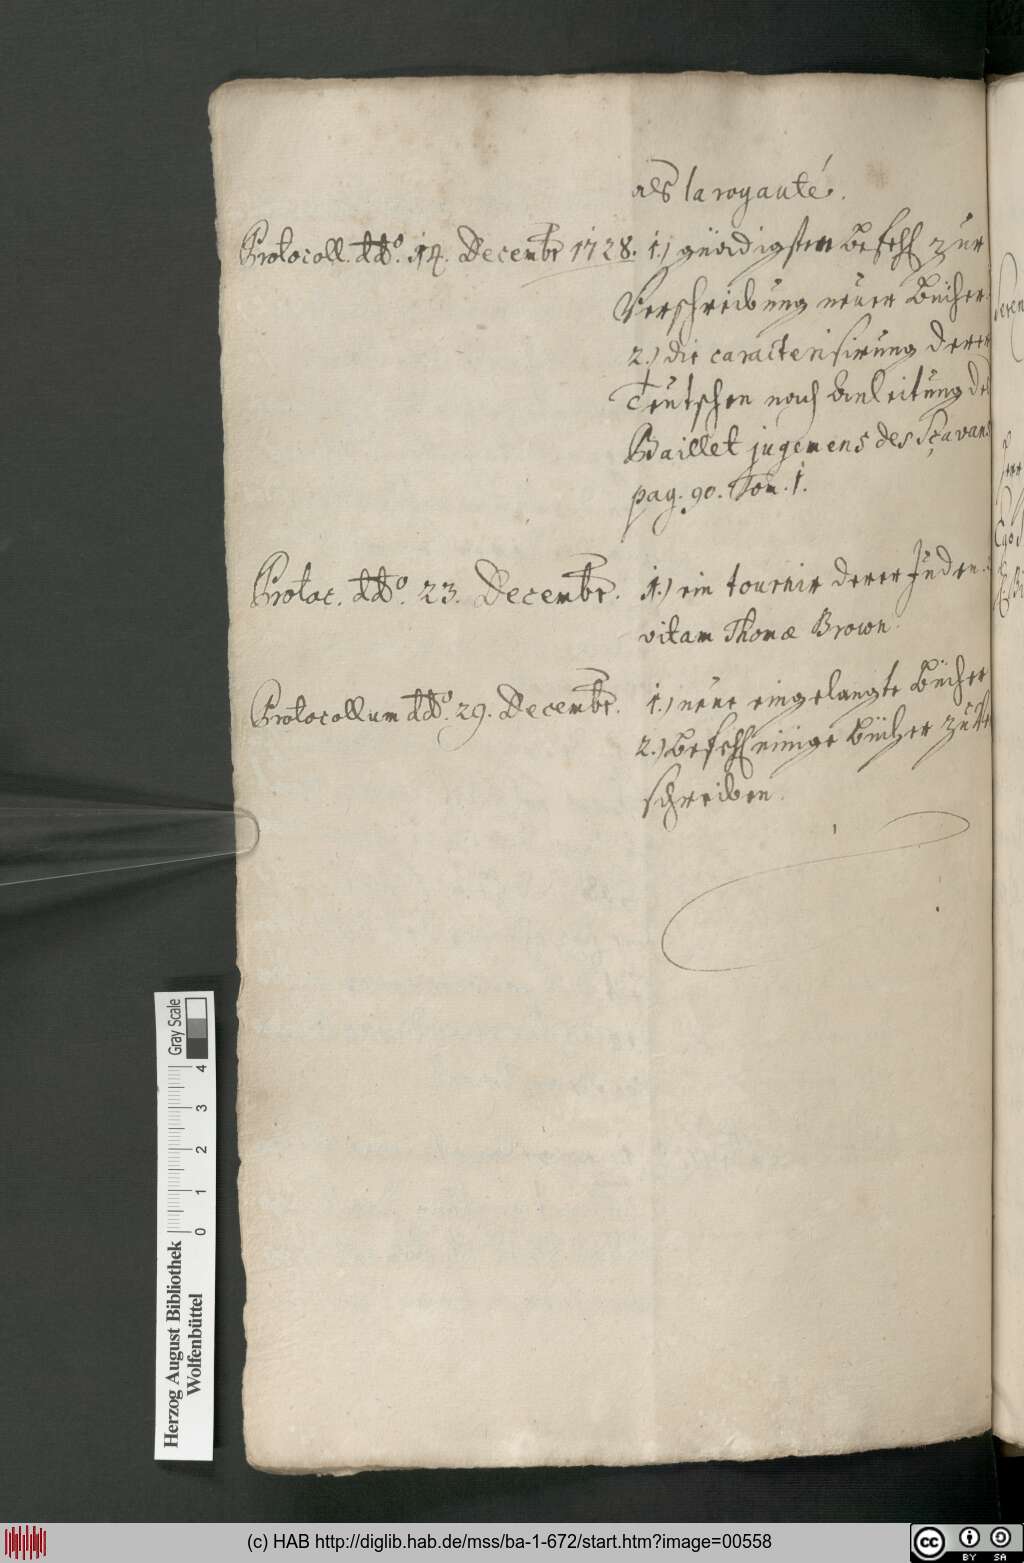 als la royauté.
Protocoll. ddº. 14. Decembr 1728. 1.) gnädigsten Befehl zur
Verschreibung neuer Bücher
2.) die caracterisirung derer
Teutschen nach Anleitung des
Baillet jugemens des Sçavans
pag. 90. Tom. 1.
Protoc. ddº. 23. Decembr. 1.) ein tournir derer Juden.
vitam Thomæ Brown.
Protocollum ddº. 29. Decembr. 1.) neue eingelangte Bücher
2.) Befehl einige Bücher zu
schreiben.
Gray Scale
0 1 2 3 4
Herzog August Bibliothek
Wolfenbüttel
(c) HAB http://diglib.hab.de/mss/ba-1-672/start.htm?image=00558
cc BY SA